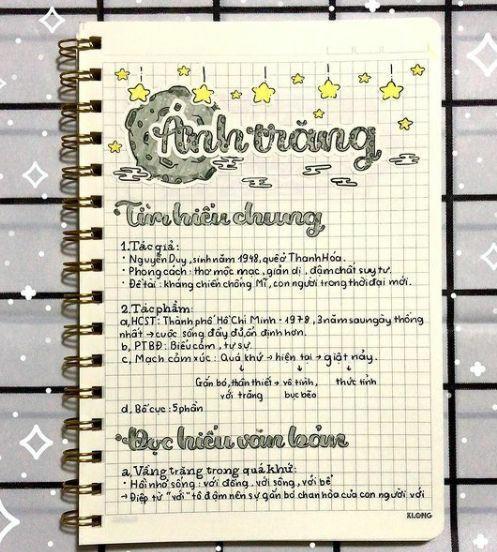 Ánh trăng
Tìm hiểu chung
1. Tác giả:
• Nguyễn Duy, sinh năm 1948, quê ở Thanh Hóa.
• Phong cách: thơ mộc mạc, giản dị, đậm chất suy tư.
• Đề tài: kháng chiến chống Mĩ, con người trong thời đại mới.
2. Tác phẩm:
a, HCST: Thành phố Hồ Chí Minh - 1978, 3 năm sau ngày thống
nhất → cuộc sống đầy đủ, ổn định hơn.
b, PTBĐ: Biểu cảm, tự sự.
c, Mạch cảm xúc: Quá khứ → hiện tại → giật nảy.
Gắn bó, thân thiết → vô tình, thức tỉnh
với trăng bục bẽo
d, Bố cục: 5 phần
Đọc hiểu văn bản
a, Vầng trăng trong quá khứ:
• Hồi nhỏ sống: với đồng, với sông, với bể
→ Điệp từ "với" tô đậm nên sự gắn bó chan hòa của con người với
KLONG